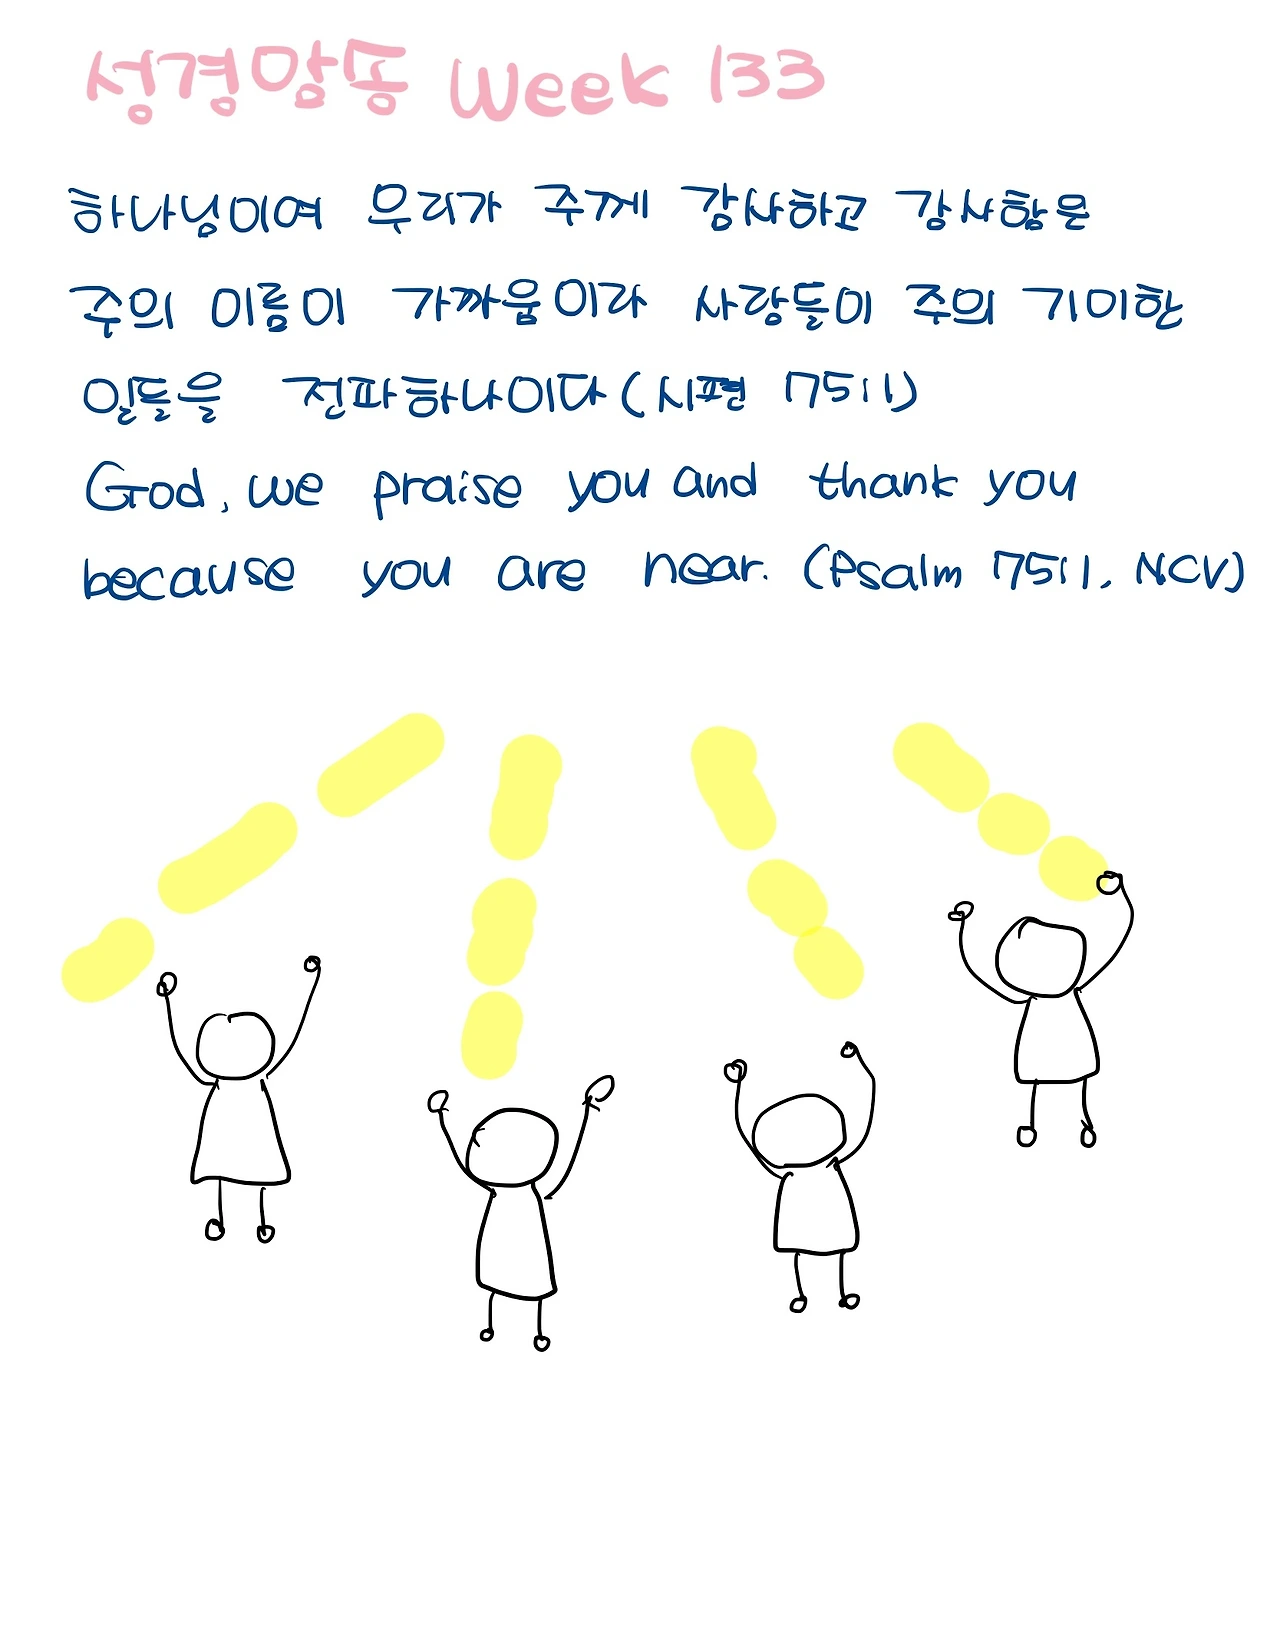 성경암송 Week 133
하나님이여 우리가 주께 감사하고 감사함은
주의 이름이 가까움이라 사람들이 주의 기이한
일들을 전파하나이다 (시편 75:1)
God, we praise you and thank you
because you are near. (Psalm 75:1, NCV)